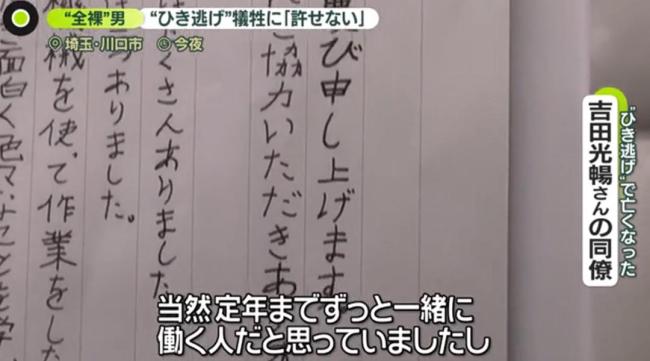 “全裸”男
“ひき逃げ”犠牲に「許せない」
埼玉・川口市
今夜
び申し上げます
ご協力いただきあ
くさんありました
ありました。
械を使って作業をした
面白く色々なことを学
“ひき逃げ”で亡くなった
吉田光暢さんの同僚
当然定年までずっと一緒に
働く人だと思っていましたし